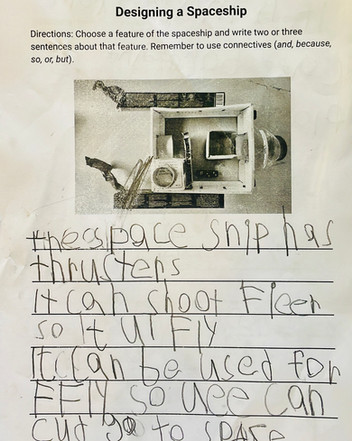 Designing a Spaceship
Directions: Choose a feature of the spaceship and write two or three
sentences about that feature. Remember to use connectives (and, because,
so, or, but).
thesspace ship has
thrusters
It can shoot Fleer
so it Ul FlY
It can be used for
FFlY so wee can
cud go to space